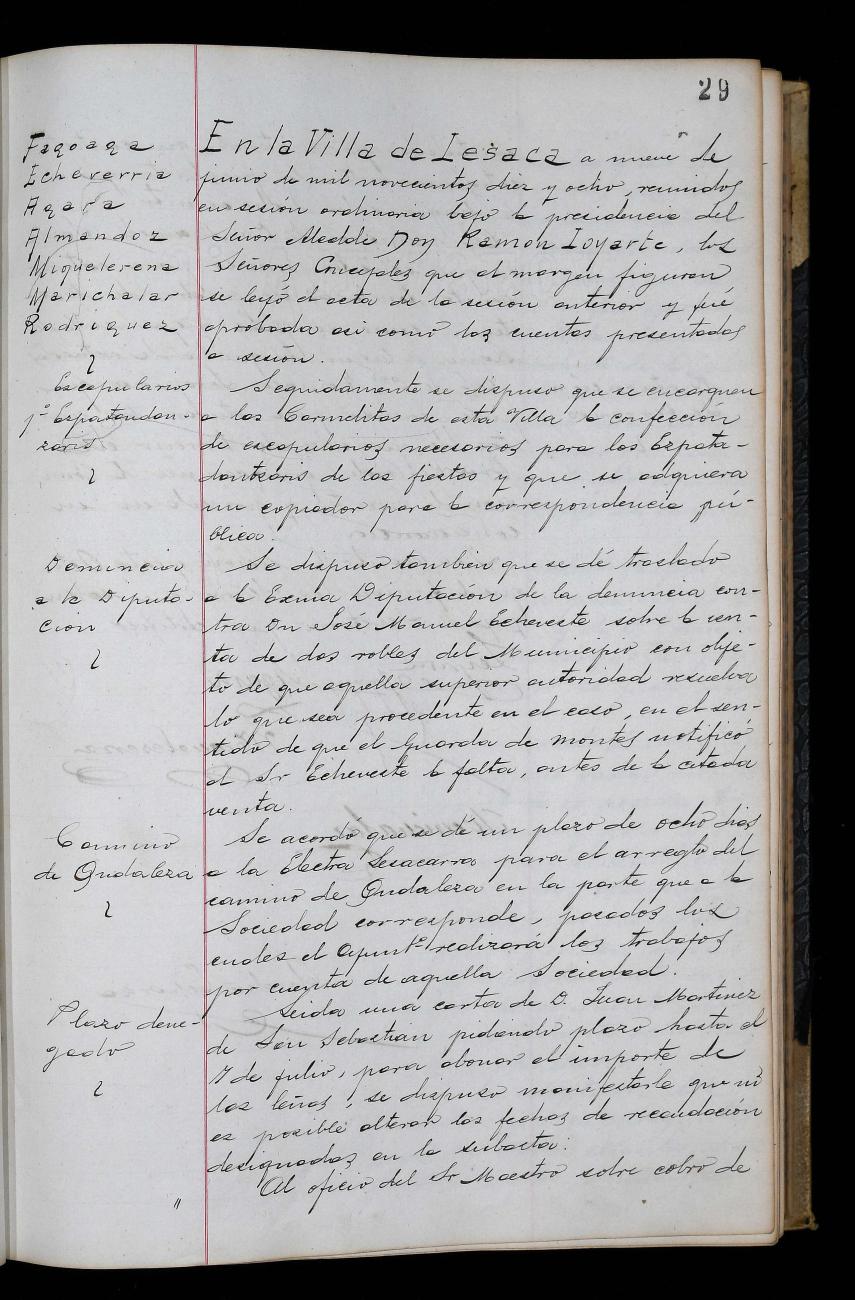 29
Fagoaga
Echeverria
Agara
Almandoz
Miquelerena
Marichalar
Rodriguez
En la Villa de Lesaca a nueve de
junio de mil novecientos diez y ocho, reunidos
en sesión ordinaria bajo la presidencia del
Señor Alcalde Don Ramon Loyarte, los
Señores Concejales que al margen figuran
se leyó el acta de la sesión anterior y fué
aprobada asi como las cuentas presentadas
a sesión.
Escapularios
pª Ezpatandan-
zaris
Seguidamente se dispuso que se encarguen
a las Carmelitas de esta Villa la confección
de escapularios necesarios para los Ezpata-
dantzaris de las fiestas y que se adquiera
un copiador para la correspondencia pú-
blica.
Denuncia
a la Diputa-
ción
Se dispuso tambien que se dé traslado
a la Exma Diputación de la denuncia con-
tra Dn José Manuel Echeveste sobre la ven-
ta de dos robles del Municipio con obje-
to de que aquella superior autoridad resuelva
lo que sea procedente en el caso, en el sen-
tido de que el Guarda de montes notificó
al Sr Echeveste la falta, antes de la citada
venta.
Camino
de Ondaleza
Se acordó que se dé un plazo de ocho dias
a la Electra Lesacarra para el arreglo del
camino de Ondaleza en la parte que a la
Sociedad corresponde, pasados los
cuales el Ayuntº realizará los trabajos
por cuenta de aquella Sociedad.
Plazo dene-
gado
Leida una carta de D. Juan Martinez
de San Sebastian pidiendo plazo hasta el
7 de julio, para abonar el importe de
las leñas, se dispuso manifestarle que no
es posible alterar las fechas de recaudación
designadas en la subasta.
"
Al oficio del Sr Maestro sobre cobro de